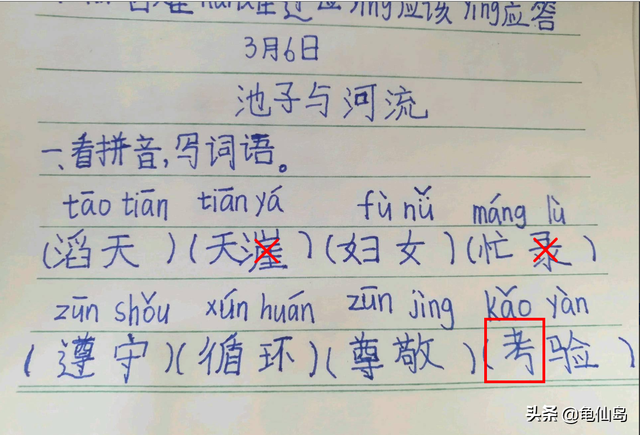 过 应 yīng应该 yìng应答
3月6日
池子与河流
一、看拼音,写词语。
tāo tiān tiān yá fù nǚ máng lù
(滔天)(天涯)(妇女)(忙录)
zūn shǒu xún huán zūn jìng kǎo yàn
(遵守)(循环)(尊敬)(考验)
头条 @龟仙岛